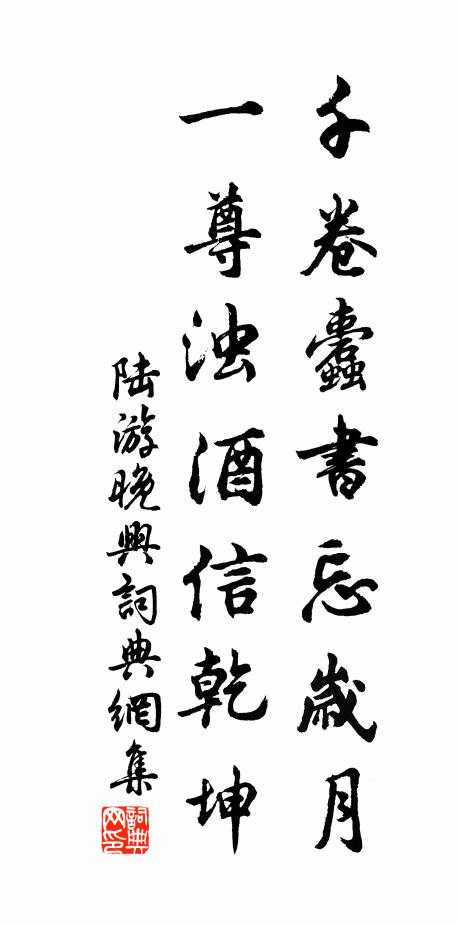 千卷蠹書忘歲月
一尊浊酒信乾坤
陆游晚興詞典網集
詞典网印